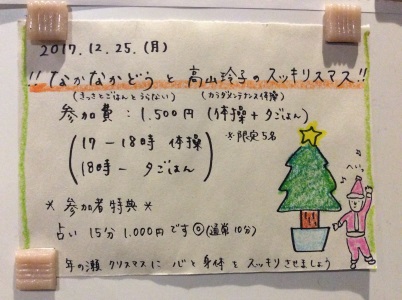 2017.12.25.(月)
!!なかなかどうと高山玲子のスッキリスマス!!
(きっさとごはんとうらない) (カラダメンテナンス体操)
参加費:1.500円(体操+夕ごはん)
※限定5名
17-18時 体操
18時- 夕ごはん
*参加者特典*
占い 15分 1.000円です◎(通常10分)
年の瀬 クリスマスに 心と身体を スッキリさせましょう